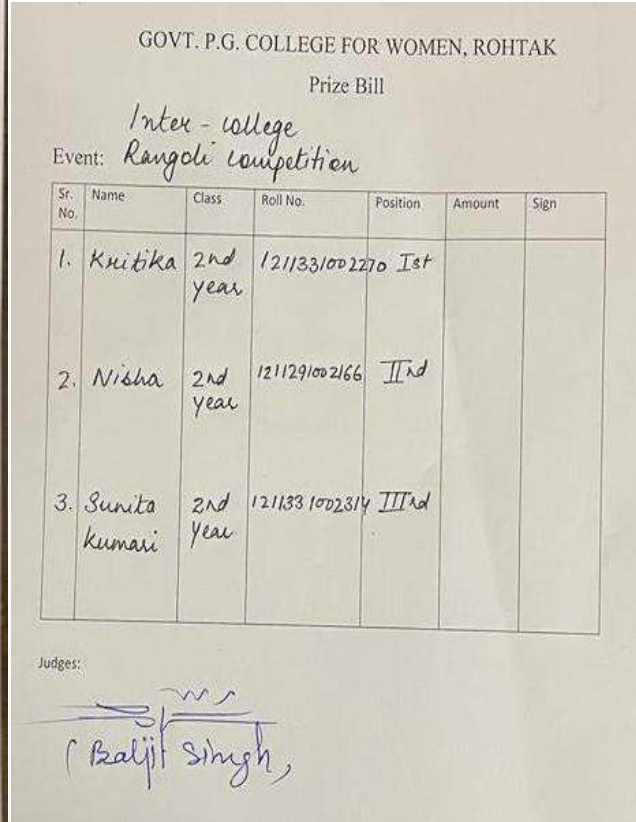 GOVT. P.G. COLLEGE FOR WOMEN, ROHTAK
Prize Bill
Inter - college
Event: Rangoli competition
Sr. No. Name Class Roll No. Position Amount Sign
1. Kritika 2nd year 1211331002270 Ist
2. Nisha 2nd year 1211291002166 IInd
3. Sunita Kumari 2nd year 1211331002314 IIIrd
Judges:
(Baljit Singh,